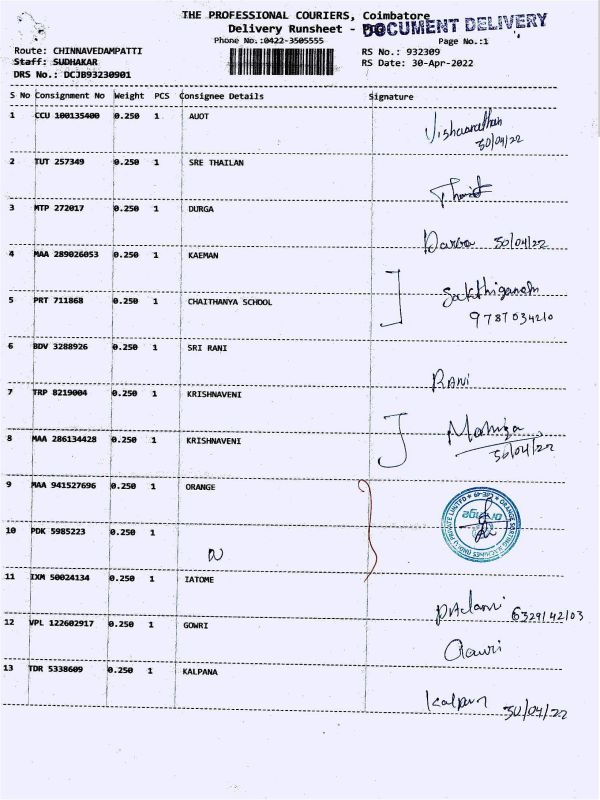 THE PROFESSIONAL COURIERS, Coimbatore
Delivery Runsheet - DOCUMENT DELIVERY
Phone No.:0422-3505555 Page No.:1
Route: CHINNAVEDAMPATTI RS No.: 932309
Staff: SUDHAKAR RS Date: 30-Apr-2022
DRS No.: DCJB93230901
S No Consignment No Weight PCS Consignee Details Signature
1 CCU 100135400 0.250 1 AUOT
30/04/22
2 TUT 257349 0.250 1 SRE THAILAN
3 MTP 272017 0.250 1 DURGA
Durga 30/04/22
4 MAA 289026053 0.250 1 KAEMAN
Sakthiganesh
5 PRT 711868 0.250 1 CHAITHANYA SCHOOL
9787034210
6 BDV 3288926 0.250 1 SRI RANI
RANI
7 TRP 8219004 0.250 1 KRISHNAVENI
8 MAA 286134428 0.250 1 KRISHNAVENI
30/04/22
9 MAA 941527696 0.250 1 ORANGE
ORANGE SORTING MACHINES (INDIA) PRIVATE LIMITED
orange
10 PDK 5985223 0.250 1
11 IXM 50024134 0.250 1 IATOME
6329142103
12 VPL 122602917 0.250 1 GOWRI
Gowri
13 TDR 5338609 0.250 1 KALPANA
Kalpana 30/04/22